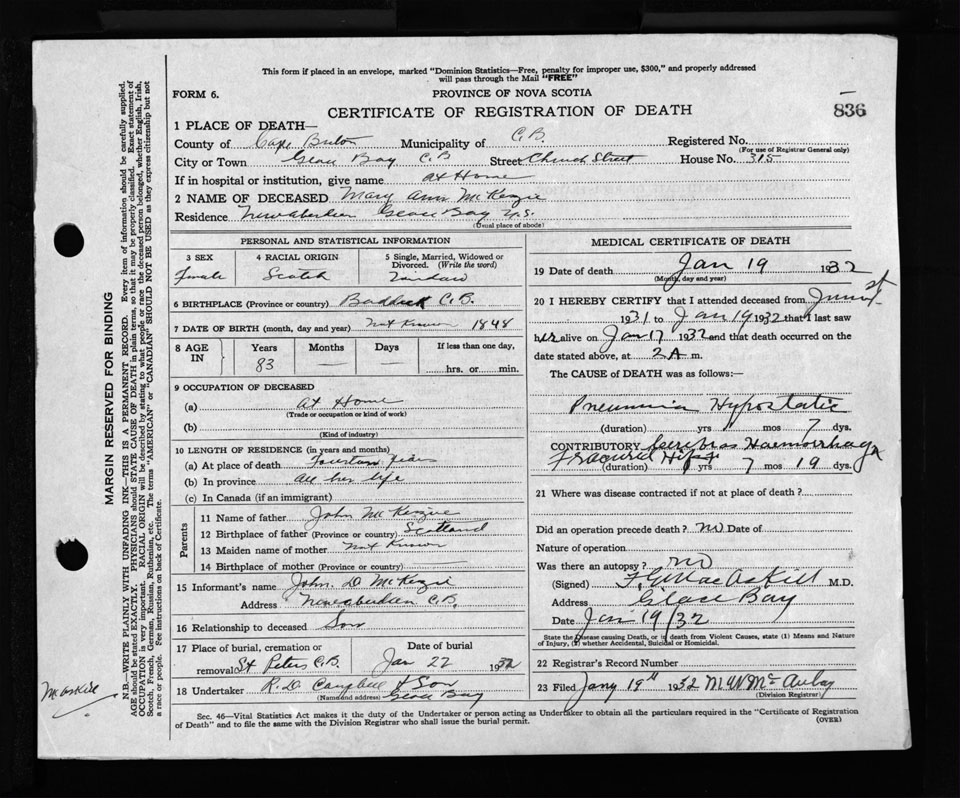 This form if placed in an envelope, marked "Dominion Statistics—Free, penalty for improper use, $300," and properly addressed
will pass through the Mail "FREE"
FORM 6.
PROVINCE OF NOVA SCOTIA
CERTIFICATE OF REGISTRATION OF DEATH
836
1 PLACE OF DEATH—
County of Cape Breton Municipality of C.B. Registered No.
(For use of Registrar General only)
City or Town Glace Bay C B Street Church Street House No. 315
If in hospital or institution, give name at Home
2 NAME OF DECEASED Mary Ann McKenzie
Residence Newaberdeen Glace Bay N.S.
(Usual place of abode)
PERSONAL AND STATISTICAL INFORMATION
3 SEX
Female
4 RACIAL ORIGIN
Scotch
5 Single, Married, Widowed or
Divorced. (Write the word)
Widow
6 BIRTHPLACE (Province or country) Baddeck C.B.
7 DATE OF BIRTH (month, day and year) Not Known 1848
8 AGE
IN
Years
83
Months
—
Days
—
If less than one day,
hrs. or min.
9 OCCUPATION OF DECEASED
(a) At Home
(Trade or occupation or kind of work)
(b)
(Kind of industry)
10 LENGTH OF RESIDENCE (in years and months)
(a) At place of death years
(b) In province All her life
(c) In Canada (if an immigrant)
Parents
11 Name of father John McKenzie
12 Birthplace of father (Province or country) Scotland
13 Maiden name of mother Not Known
14 Birthplace of mother (Province or country) —
15 Informant's name John D McKenzie
Address Newaberdeen C.B.
16 Relationship to deceased Son
17 Place of burial, cremation or
removal St Peters C.B.
Date of burial
Jan 22 1932
18 Undertaker R.D. Campbell & Son
(Name and address) Glace Bay
MEDICAL CERTIFICATE OF DEATH
19 Date of death Jan 19 1932
(Month, day and year)
20 I HEREBY CERTIFY that I attended deceased from June 1st
1931 to Jan 19 1932 that I last saw
her alive on Jan 17 1932 and that death occurred on the
date stated above, at 2 A m.
The CAUSE of DEATH was as follows:—
Pneumonia Hypostatic
(duration) yrs mos 7 dys.
CONTRIBUTORY Cerebral Haemorrhage
Fractured Hip
(duration) yrs 7 mos 19 dys.
21 Where was disease contracted if not at place of death?
Did an operation precede death? no Date of
Nature of operation
Was there an autopsy? no
(Signed) MacAskill M.D.
Address Glace Bay
Date Jan 19/32
State the Disease causing Death, or in death from Violent Causes, state (1) Means and Nature
of Injury, (?) whether Accidental, Suicidal or Homicidal.
22 Registrar's Record Number
23 Filed Jany 19th 1932 McAulay
(Division Registrar)
Sec. 46—Vital Statistics Act makes it the duty of the Undertaker or person acting as Undertaker to obtain all the particulars required in the "Certificate of Registration
of Death" and to file the same with the Division Registrar who shall issue the burial permit.
(OVER)
MARGIN RESERVED FOR BINDING
N.B.—WRITE PLAINLY WITH UNFADING INK—THIS IS A PERMANENT RECORD. Every item of information should be carefully supplied.
AGE should be stated EXACTLY. PHYSICIANS should STATE CAUSE OF DEATH in plain terms, so that it may be properly classified. Exact statement of
OCCUPATION is very important. RACIAL ORIGIN will be described by stating to what people or race the deceased person belonged, whether English, Irish,
Scotch, French, German, Russian, Ruthenian, etc. The terms "AMERICAN" or "CANADIAN" SHOULD NOT BE USED as they express citizenship but not
a race or people. See instructions on back of Certificate.
McAskill